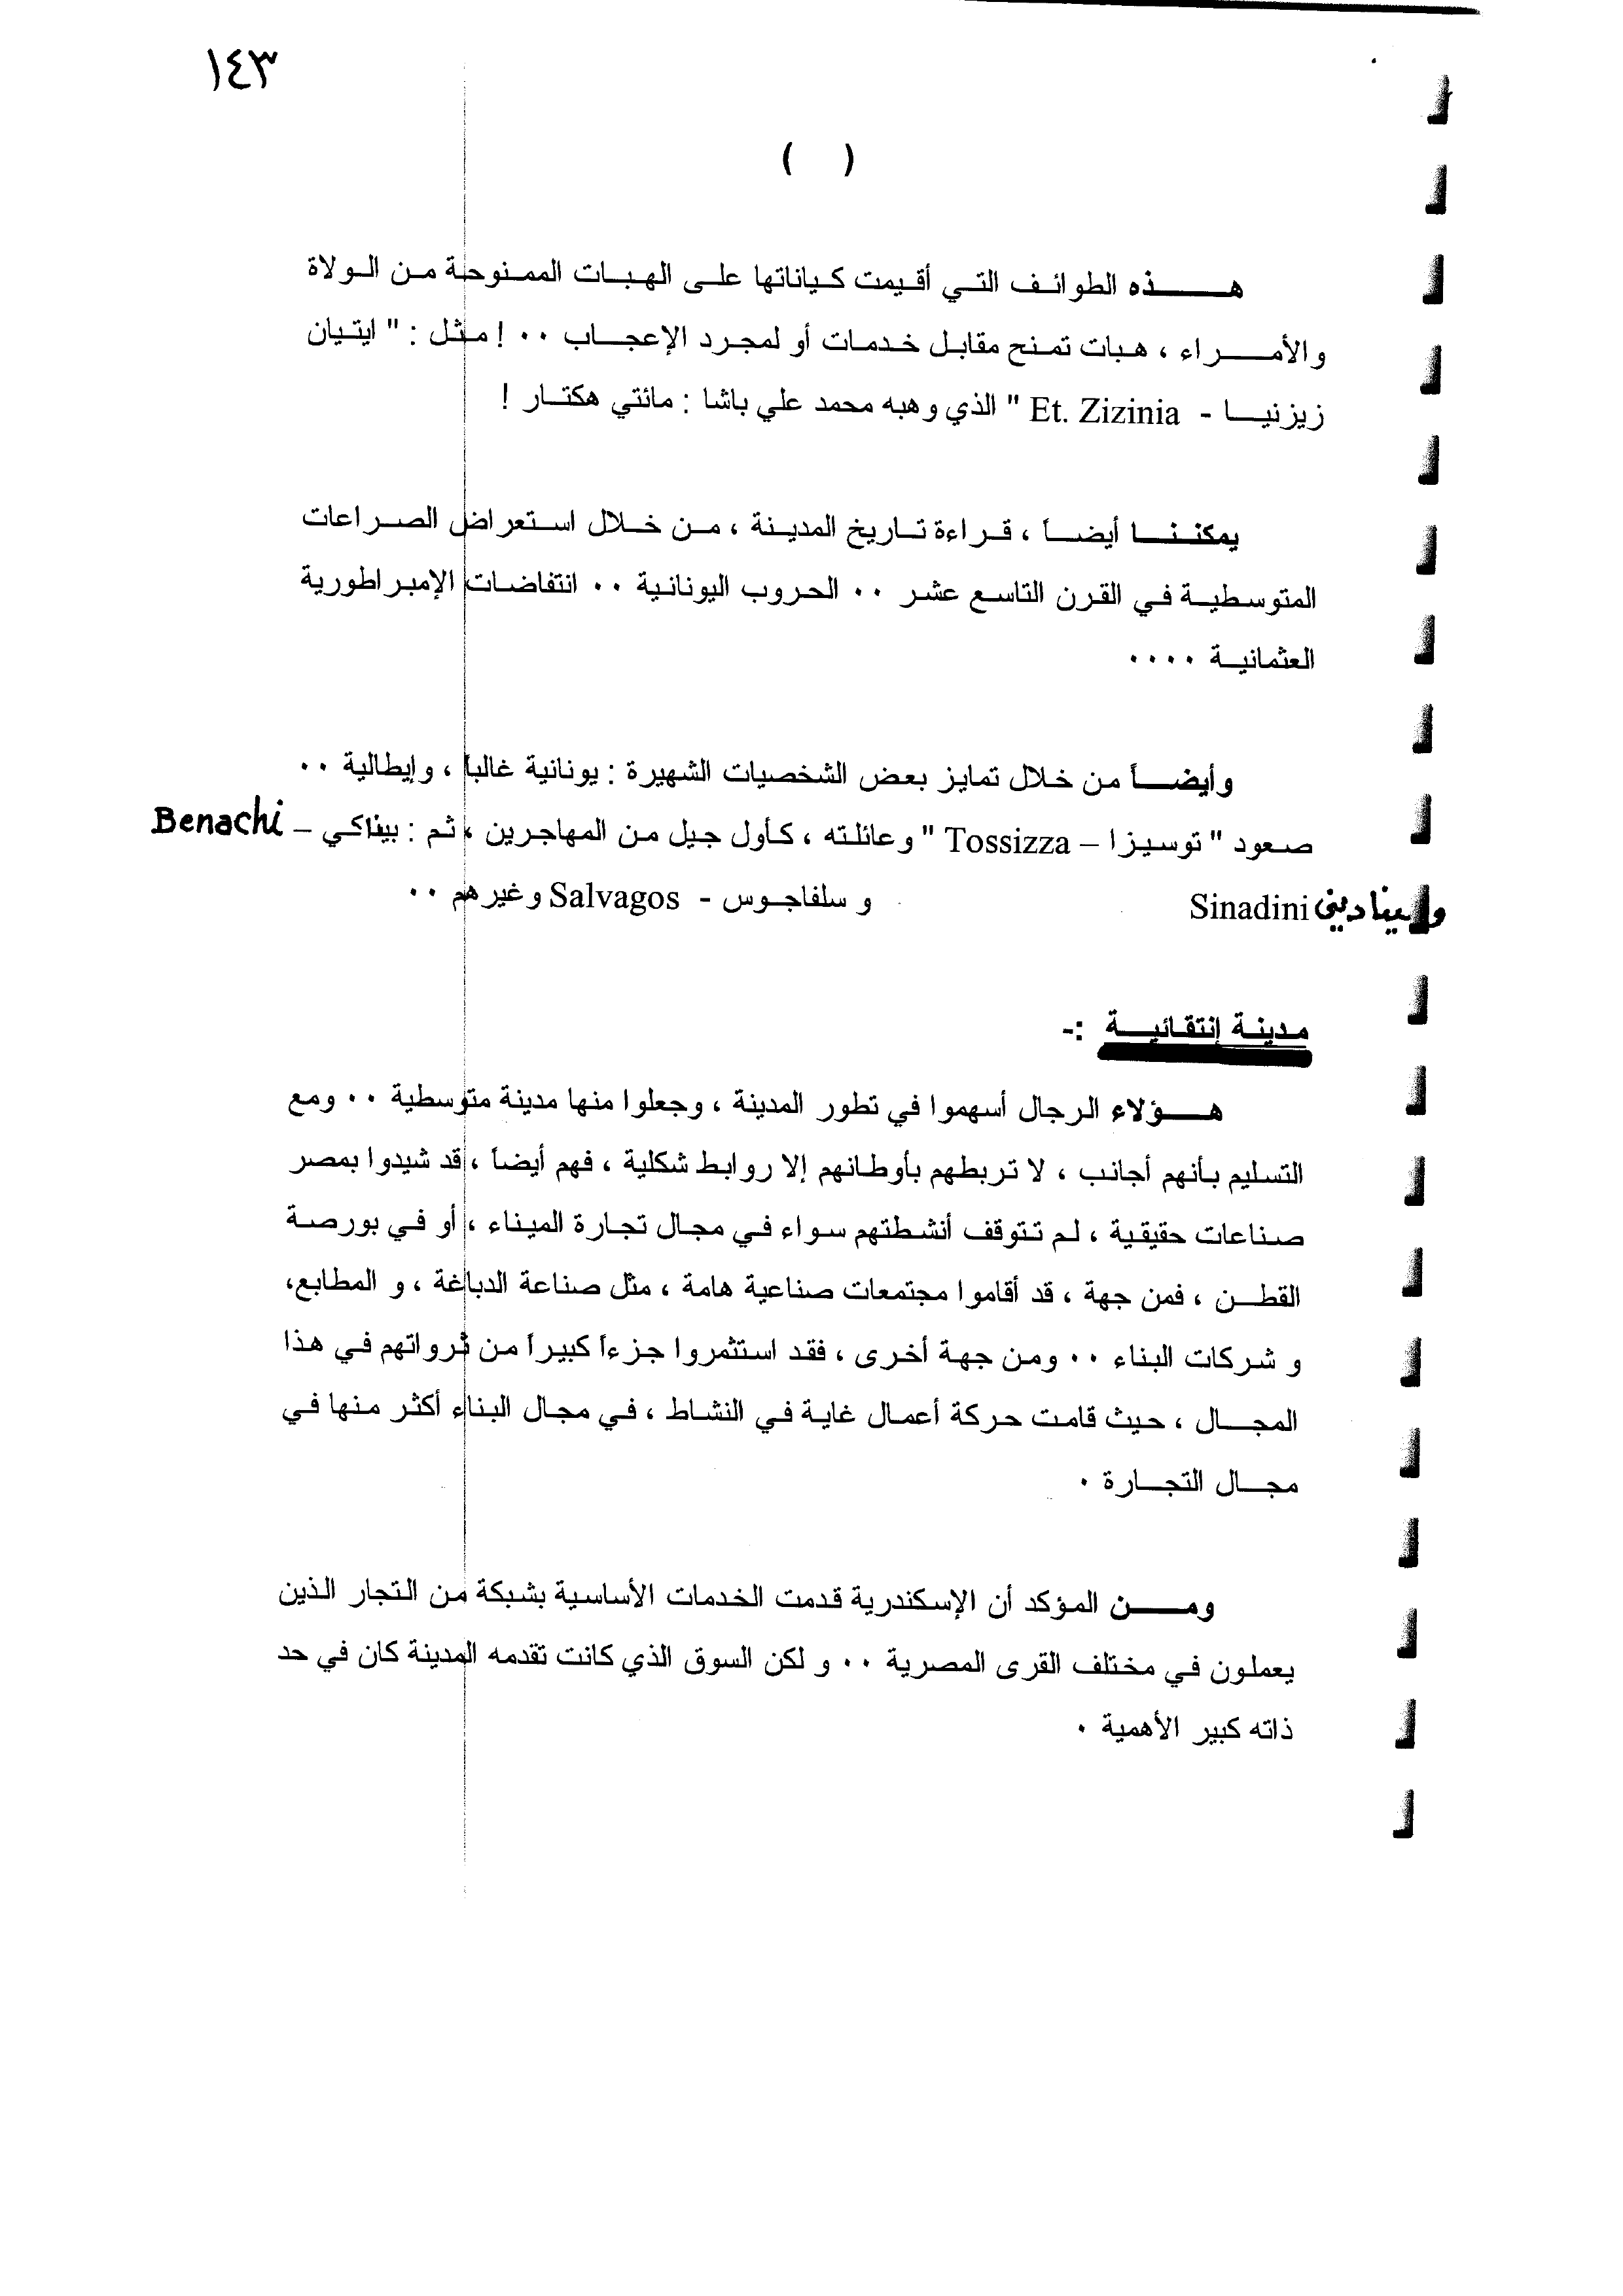 ١٤٣
( )
هـذه الطوائف التي أقيمت كياناتها على الهبات الممنوحة من الولاة
والأمراء ، هبات تمنح مقابل خدمات أو لمجرد الإعجاب ٠٠ ! مثل : " ايتيان
زيزنيا - Et. Zizinia " الذي وهبه محمد علي باشا : مائتي هكتار !
يمكننا أيضاً ، قراءة تاريخ المدينة ، من خلال استعراض الصراعات
المتوسطية في القرن التاسع عشر ٠٠ الحروب اليونانية ٠٠ انتفاضات الإمبراطورية
العثمانية ٠٠٠٠
وأيضاً من خلال تمايز بعض الشخصيات الشهيرة : يونانية غالباً ، وإيطالية ٠٠
صعود " توسيزا – Tossizza " وعائلته ، كأول جيل من المهاجرين ، ثم : بيناكي – Benachi
وسيناديني Sinadini و سلفاجوس - Salvagos وغيرهم ٠٠
مدينة إنتقائية :-
هـؤلاء الرجال أسهموا في تطور المدينة ، وجعلوا منها مدينة متوسطية ٠٠ ومع
التسليم بأنهم أجانب ، لا تربطهم بأوطانهم إلا روابط شكلية ، فهم أيضاً ، قد شيدوا بمصر
صناعات حقيقية ، لم تتوقف أنشطتهم سواء في مجال تجارة الميناء ، أو في بورصة
القطن ، فمن جهة ، قد أقاموا مجتمعات صناعية هامة ، مثل صناعة الدباغة ، و المطابع،
و شركات البناء ٠٠ ومن جهة أخرى ، فقد استثمروا جزءاً كبيراً من ثرواتهم في هذا
المجال ، حيث قامت حركة أعمال غاية في النشاط ، في مجال البناء أكثر منها في
مجال التجارة ٠
ومن المؤكد أن الإسكندرية قدمت الخدمات الأساسية بشبكة من التجار الذين
يعملون في مختلف القرى المصرية ٠٠ و لكن السوق الذي كانت تقدمه المدينة كان في حد
ذاته كبير الأهمية ٠